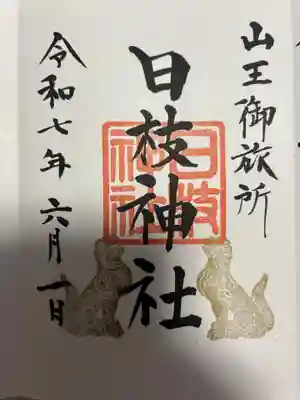 山王御旅所
日枝神社
日枝神社
令和七年 六月 一日